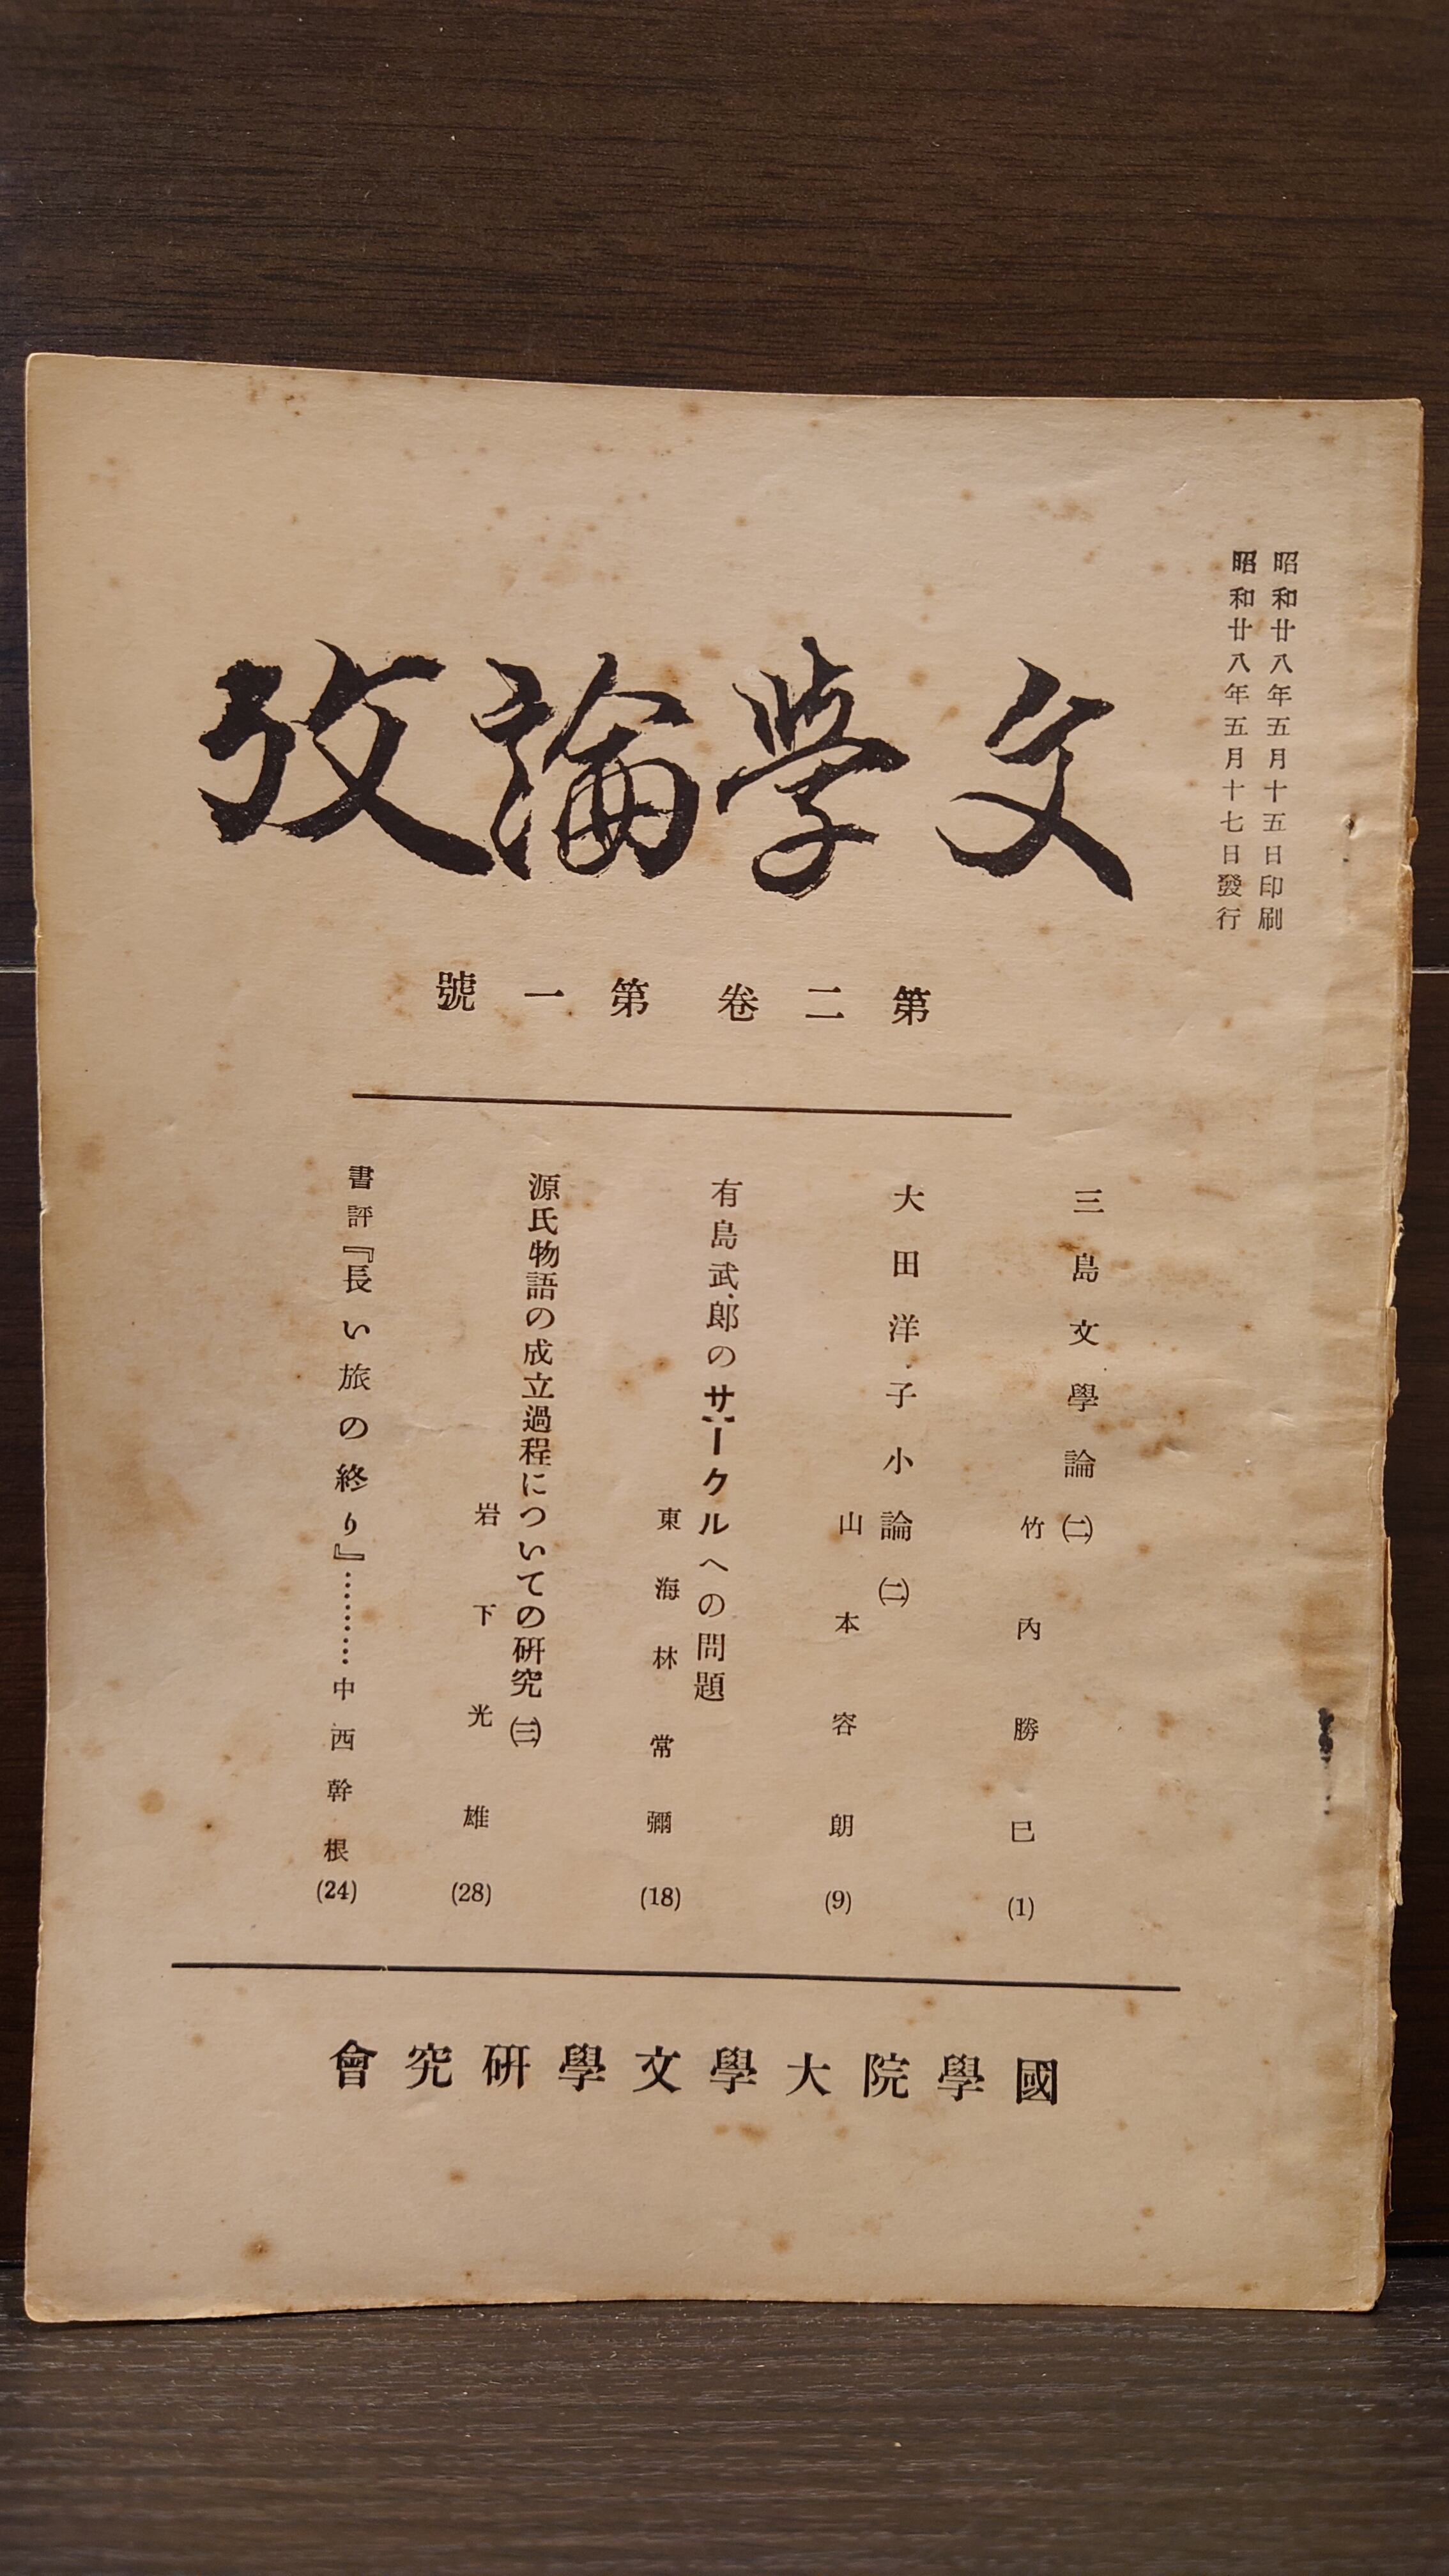 昭和廿八年五月十五日印刷
昭和廿八年五月十七日發行
文學論攷
第二卷 第一號
三島文學論㈡
竹內勝巳 (1)
大田洋子小論㈡
山本容朗 (9)
有島武郎のサークルへの問題
東海林常彌 (18)
源氏物語の成立過程についての研究㈢
岩下光雄 (28)
書評『長い旅の終り』………中西幹根 (24)
國學院大學文學研究會